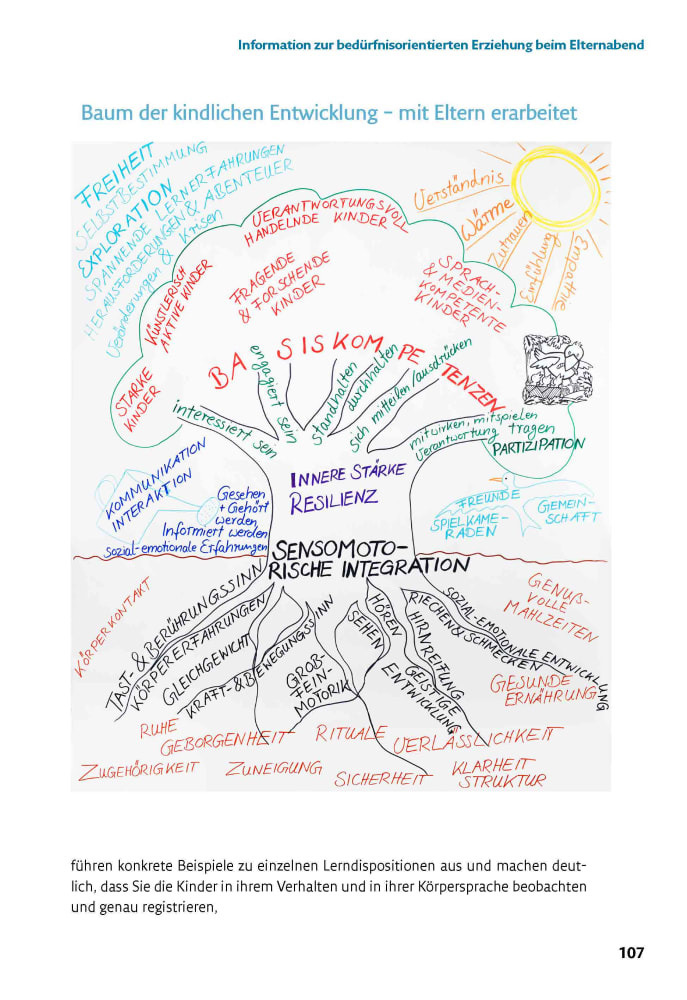 Information zur bedürfnisorientierten Erziehung beim Elternabend
Baum der kindlichen Entwicklung – mit Eltern erarbeitet
FREIHEIT
SELBSTBESTIMMUNG
EXPLORATION
SPANNENDE LERNERFAHRUNGEN
HERAUSFORDERUNGEN & ABENTEUER
Veränderungen & Krisen
Verständnis
Wärme
Zutrauen
Einfühlung
Empathie
VERANTWORTUNGSVOLL
HANDELNDE KINDER
KÜNSTLERISCH
AKTIVE KINDER
FRAGENDE
& FORSCHENDE
KINDER
SPRACH-
& MEDIEN-
KOMPETENTE
KINDER
STARKE
KINDER
BASISKOMPETENZEN
interessiert sein
engagiert sein
standhalten
durchhalten
sich mitteilen/ausdrücken
mitwirken, mitspielen
Verantwortung tragen
PARTIZIPATION
INNERE STÄRKE
RESILIENZ
KOMMUNIKATION
INTERAKTION
Gesehen
+ Gehört
werden
Informiert werden
Sozial-emotionale Erfahrungen
FREUNDE
SPIELKAME-
RADEN
GEMEIN-
SCHAFT
SENSOMOTO-
RISCHE INTEGRATION
KÖRPERKONTAKT
TAST- & BERÜHRUNGSSINN
KÖRPERERFAHRUNGEN
GLEICHGEWICHT
KRAFT- & BEWEGUNGSSINN
GROß-
FEIN-
MOTORIK
SEHEN
HÖREN
HIRNREIFUNG
GEISTIGE
ENTWICKLUNG
RIECHEN & SCHMECKEN
SOZIAL-EMOTIONALE ENTWICKLUNG
GENUß-
VOLLE
MAHLZEITEN
GESUNDE
ERNÄHRUNG
RUHE
GEBORGENHEIT
RITUALE
VERLÄSSLICHKEIT
ZUGEHÖRIGKEIT
ZUNEIGUNG
SICHERHEIT
KLARHEIT
STRUKTUR
führen konkrete Beispiele zu einzelnen Lerndispositionen aus und machen deut-
lich, dass Sie die Kinder in ihrem Verhalten und in ihrer Körpersprache beobachten
und genau registrieren,
107